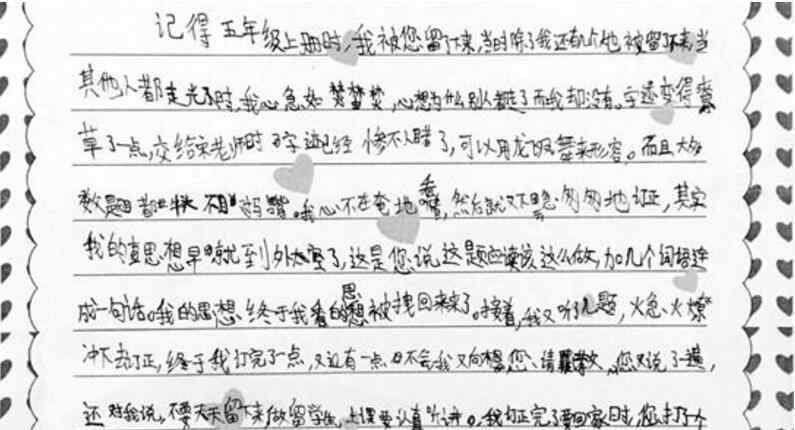 记得五年级上册时,我被您留下来,当时除了我还有几个也被留下来,当
其他人都走光了时,我心急如焚,心想为什么别人都走了而我却没有。字迹变得潦
草了一点,交给宋老师时字迹已经惨不人睹了,可以用龙飞凤舞来形容。而且大多
数题目都牛头不对马嘴。我心不在焉地看,然后就又急匆匆地订正,其实
我的思想早就到外太空了,这是您说这题应该这么做,加几个词语连
成一句话。我的思想终于我的思想被拽回来了。接着,我又听了几题,火急火燎
冲下去订正,终于我订完了一点,又还有一点不会我又向您请教,您又说了一遍,
还对我说,不要天天留下来做留学生,上课要认真听讲。我订正完了要回家时,您打了个